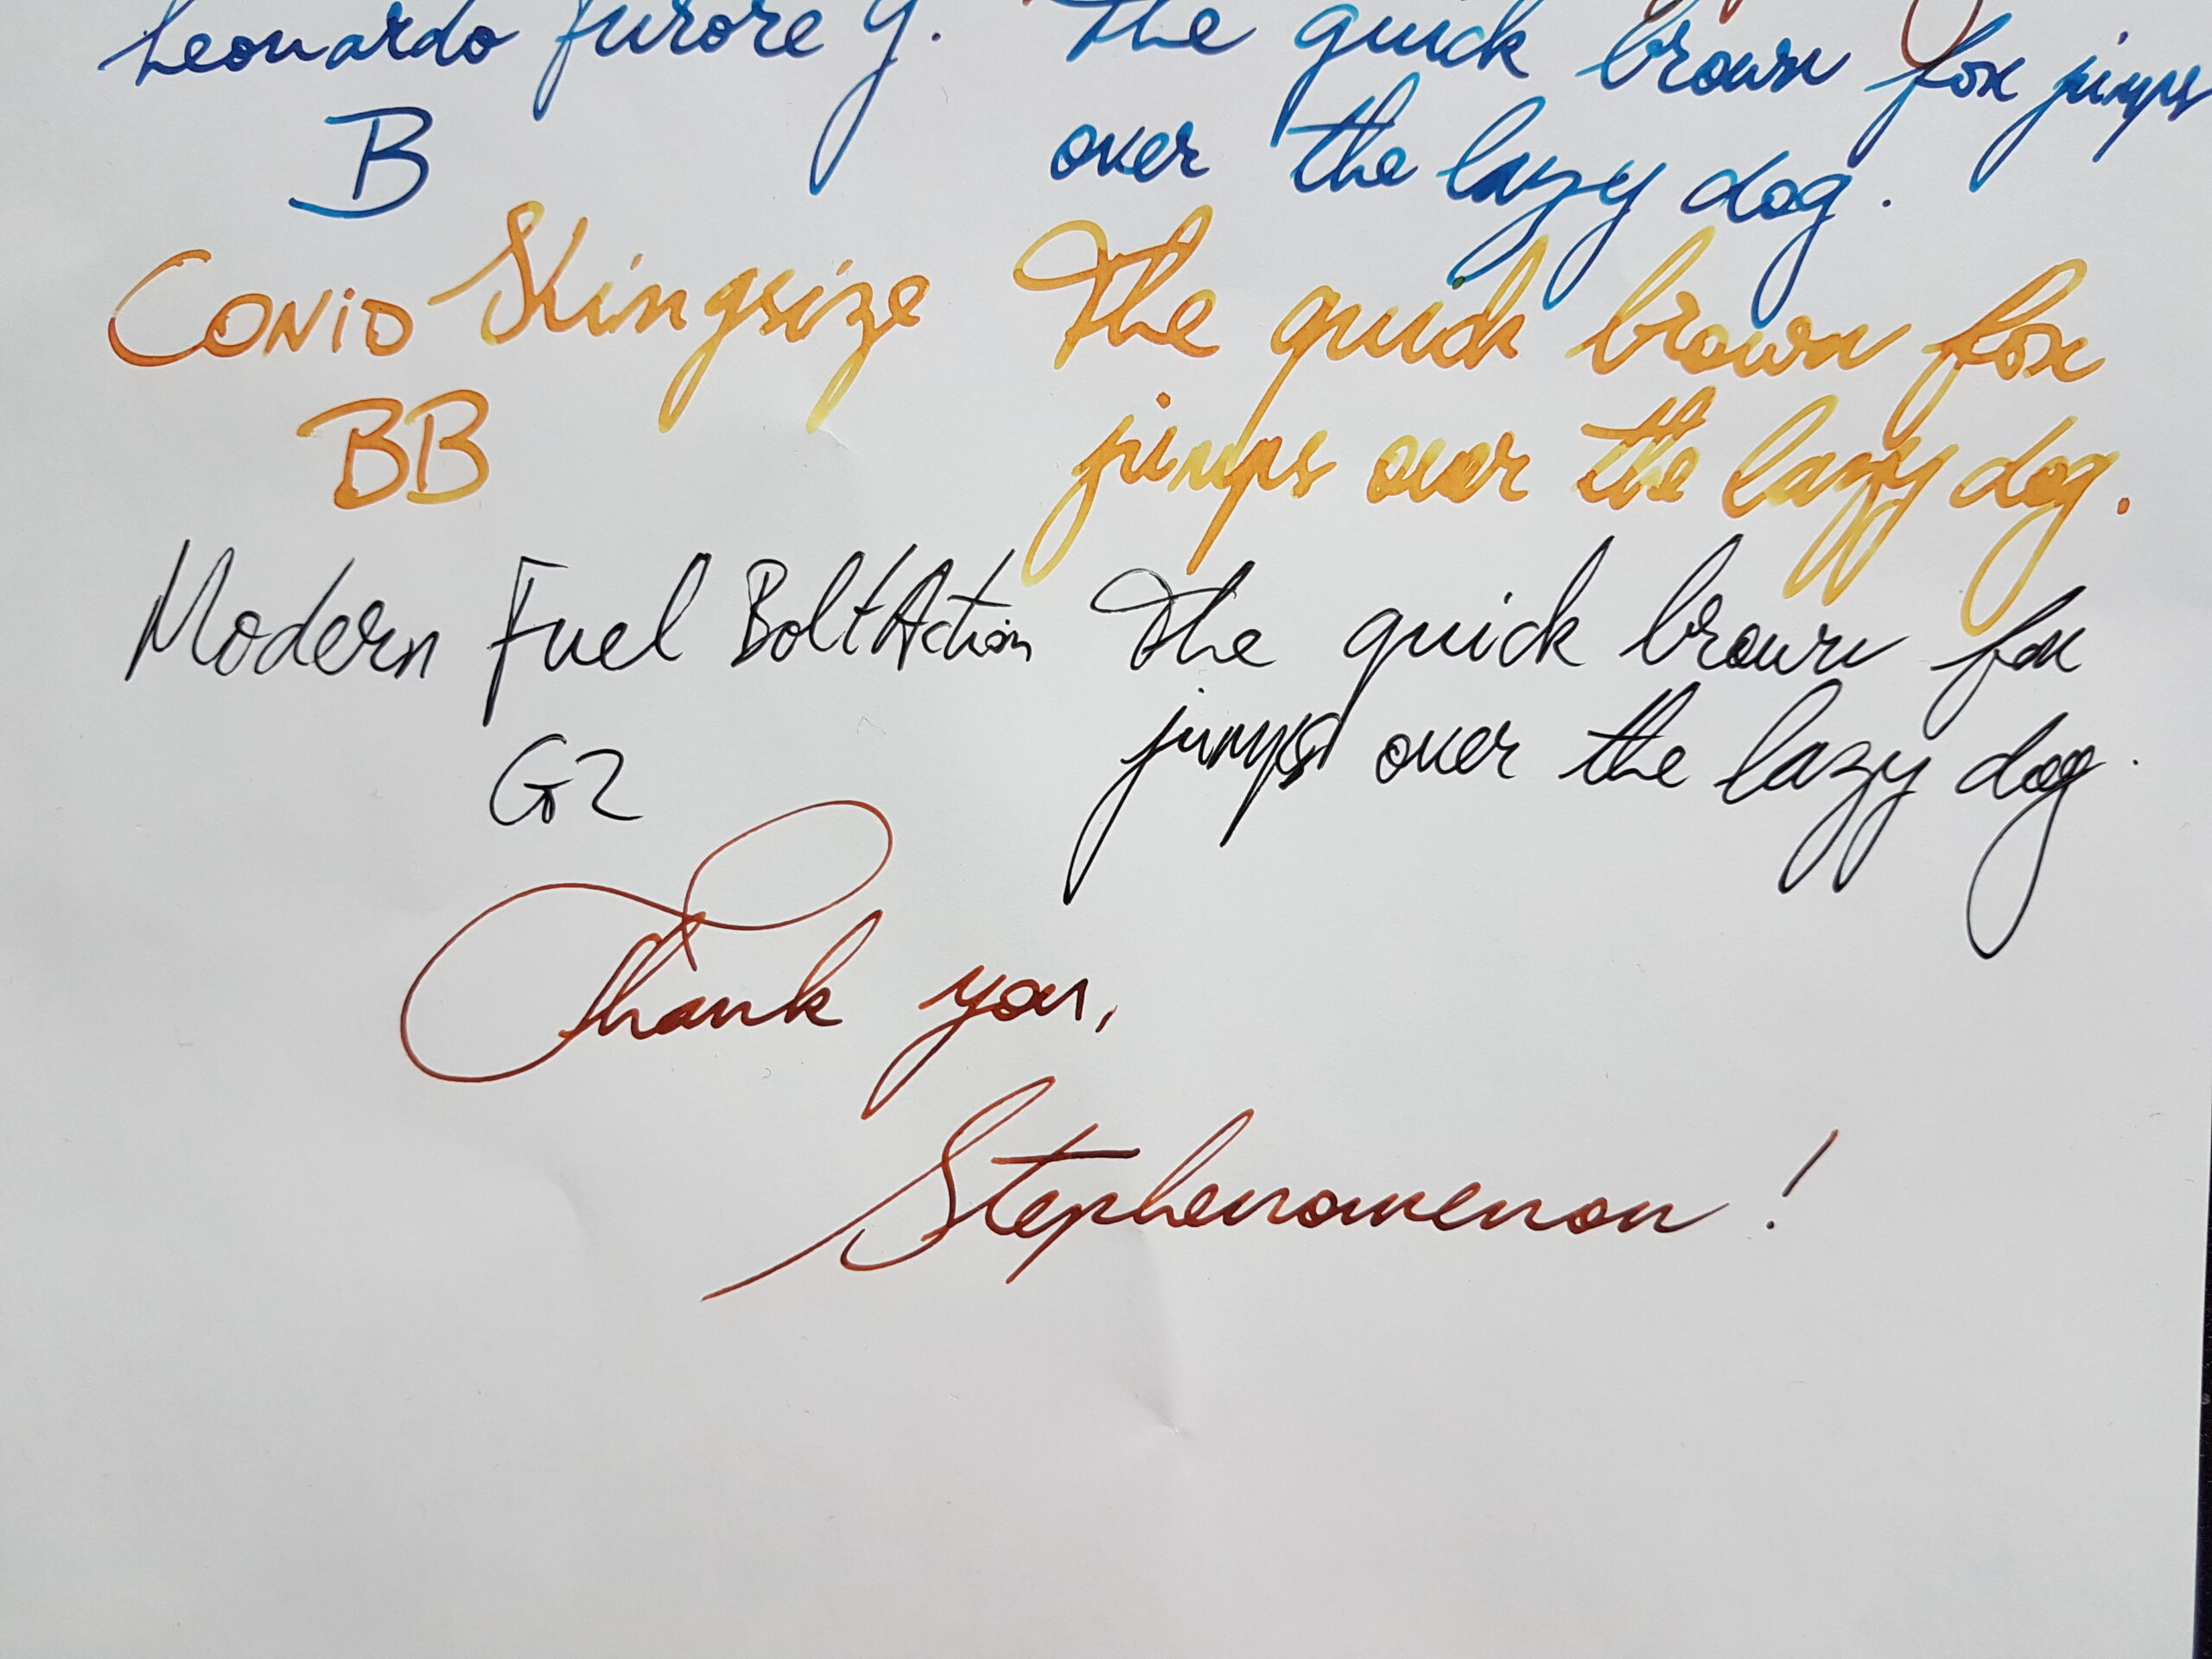 Leonardo Furore G. The quick brown fox jumps
B over the lazy dog.
CONID Skingsize The quick brown fox
BB jumps over the lazy dog.
Modern Fuel BoltAction The quick brown fox
G2 jumps over the lazy dog.
Thank you,
Stephenomenon!